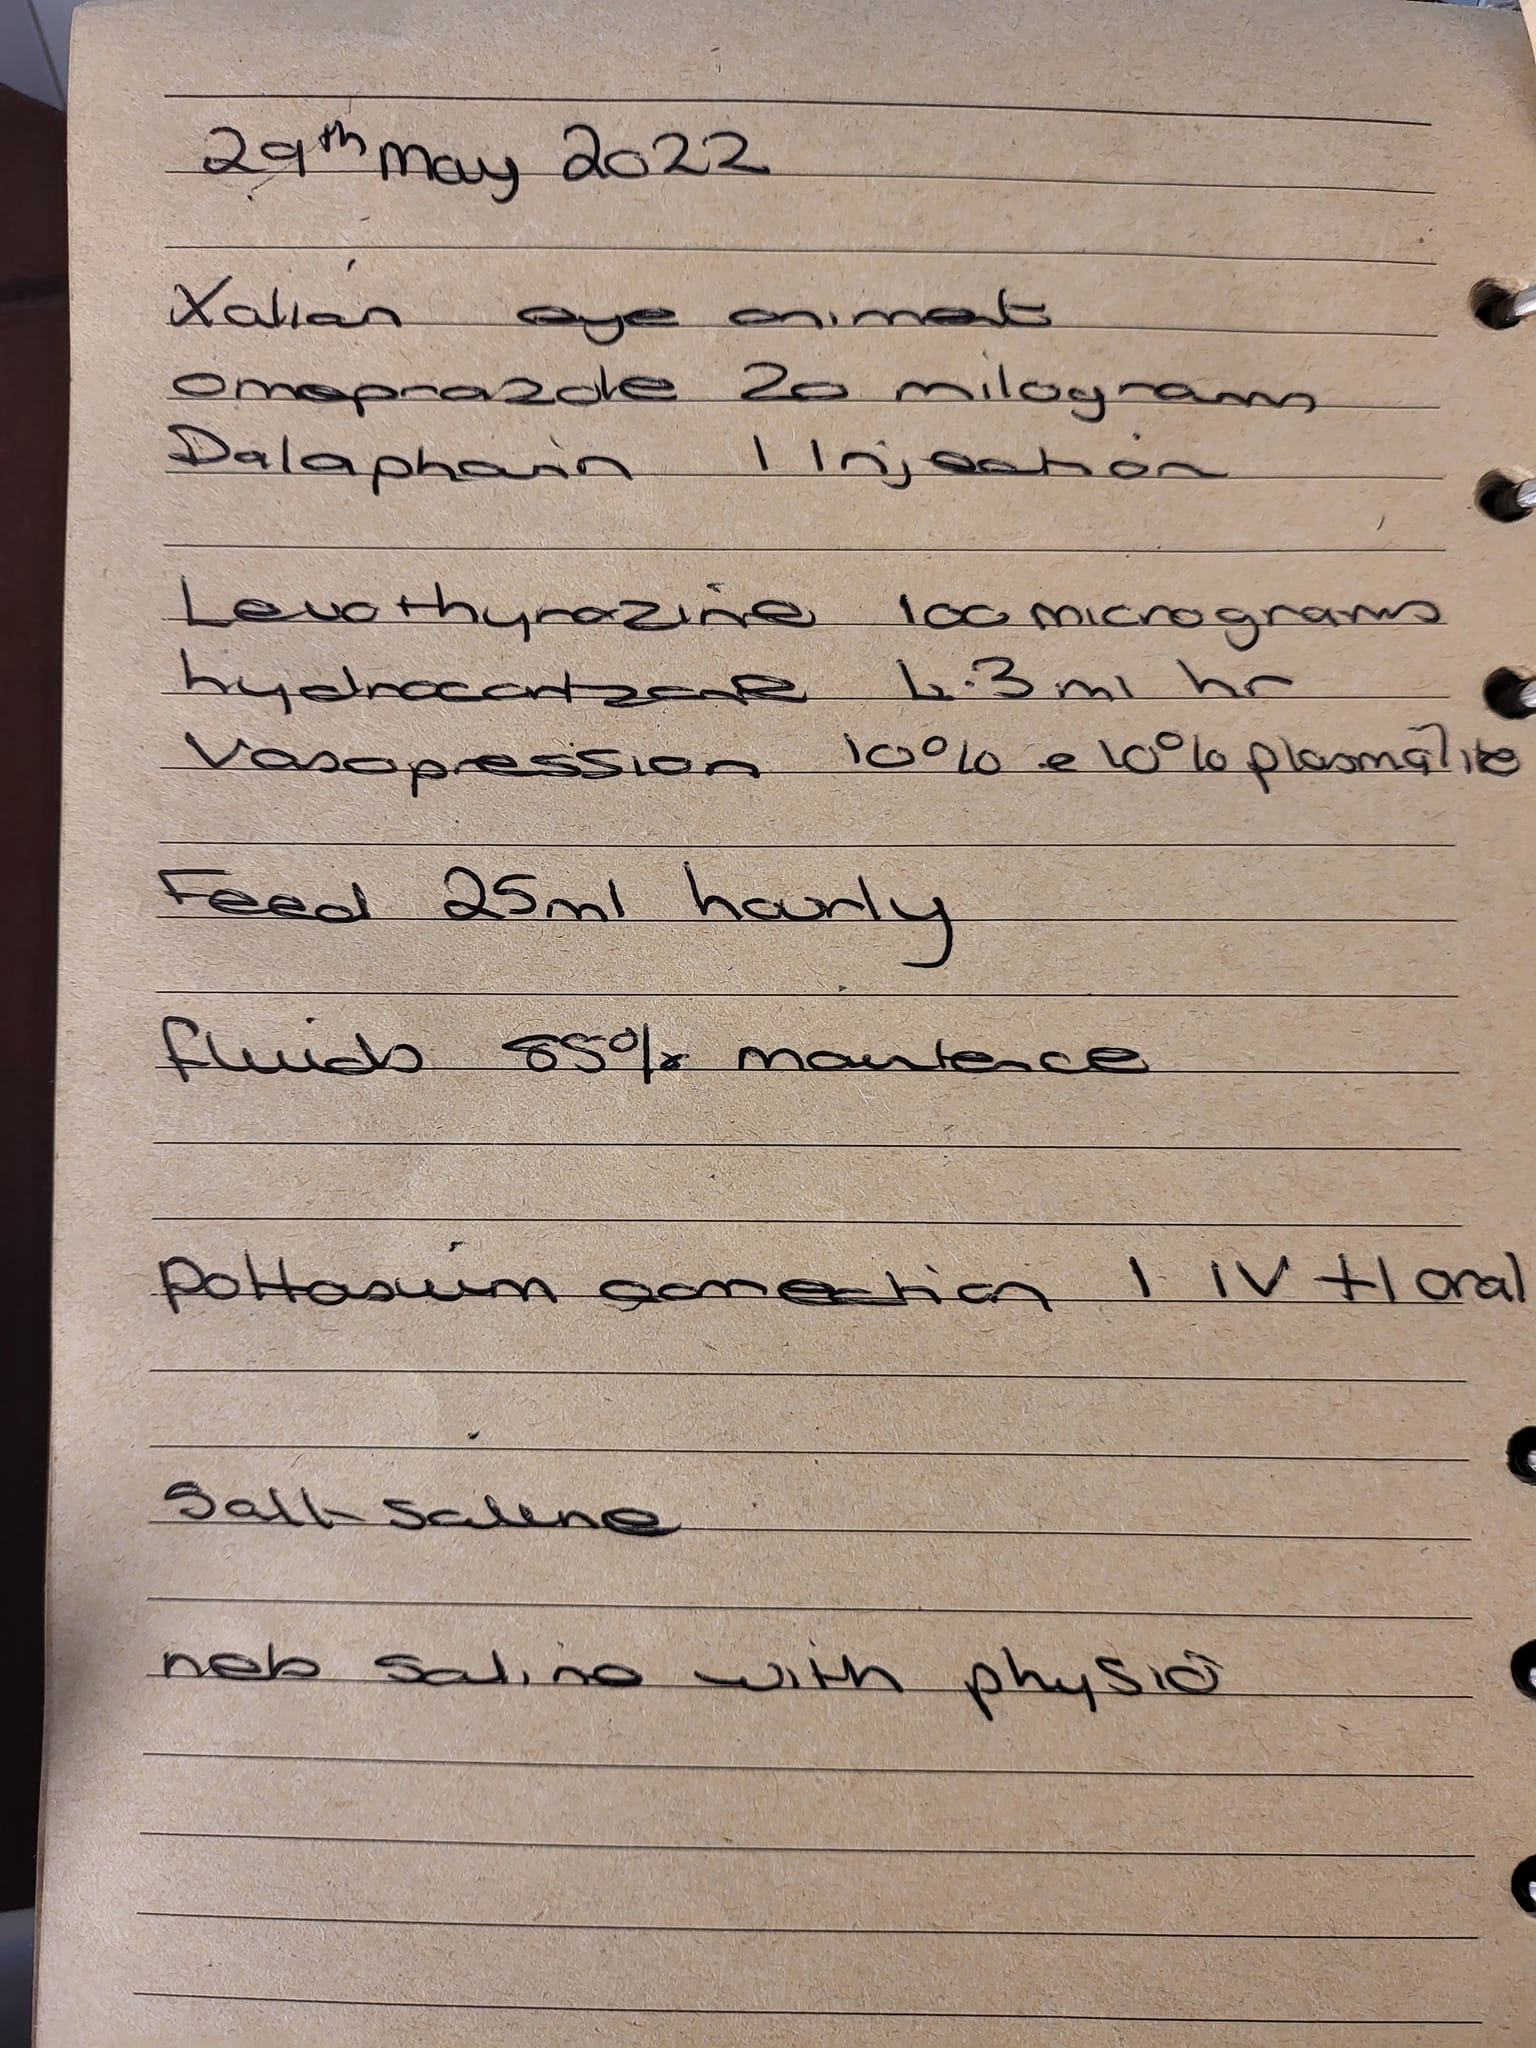 29th May 2022
Xalian eye oniment
omeprazole 20 milograms
Dalaphain 1 Injection
Levothyrozine 100 micrograms
hydrocortzone 4.3 ml hr
Vasopression 10% e 10% plasmalite
Feed 25ml hourly
fluids 85% maintence
pottasuim correction 1 IV + 1 oral
Salt saline
neb saline with physio